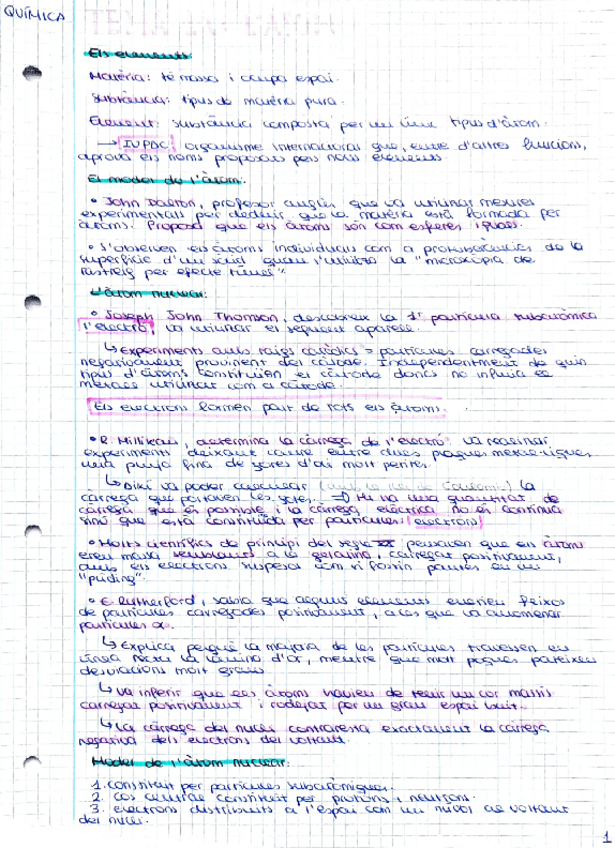 QUÍMICA
Els elements:
Matèria: té massa i ocupa espai.
Substància: tipus de matèria pura.
Element: substància composta per un únic tipus d'àtom.
→ IUPAC: organisme internacional que, entre d'altres funcions,
aprova els noms proposats pels nous elements.
El model de l'àtom:
• John Dalton, professor anglès que va utilitzar mesures
experimentals per deduir que la matèria està formada per
àtoms. Proposà que els àtoms són com esferes iguals.
• S'observen els àtoms individuals com a protuberàncies de la
superfície d'un sòlid quan s'utilitza la "microscòpia de
rastreig per efecte túnel".
L'àtom nuclear:
• Joseph John Thomson, descobreix la 1ª partícula subatòmica
l'electró, va utilitzar el següent aparell.
↳ Experiments amb raigs catòdics = partícules carregades
negativament provinent del càtode. Independentment de quin
tipus d'àtoms constituïen el càtode doncs no influïa el
metall utilitzat com a càtode.
Els electrons formen part de tots els àtoms.
• R. Millikan, determina la càrrega de l'electró. Va realitzar
experiments deixant caure entre dues plaques
una pluja fina de gotes d'oli molt petites.
↳ Així va poder calcular (amb la llei de Coulomb) la
càrrega que portaven les gotes. ⇒ Hi ha una quantitat de
càrrega que és possible i la càrrega elèctrica no és contínua
sinó que està constituïda per partícules: electrons
• Molts científics de principi del segle pensaven que els àtoms
eren massa semblant a la gelatina, carregat positivament,
amb els electrons suspesos com si fossin panses en un
"púding".
• E. Rutherford, sabia que alguns elements emetien feixos
de partícules carregades positivament, a les que va anomenar
partícules α.
↳ Explica perquè la majoria de les partícules travessen en
línea recta la làmina d'or, mentre que molt poques pateixen
desviacions molt grans.
↳ Va inferir que els àtoms havien de tenir un cor massís
carregat positivament i rodejat per un gran espai buit.
↳ La càrrega del nucli contraresta exactament la càrrega
negativa dels electrons del voltant.
Model de l'àtom nuclear:
1. constituït per partícules subatòmiques.
2. cos central constituït per protons i neutrons.
3. electrons distribuïts a l'espai com un núvol al voltant
del nucli.
1